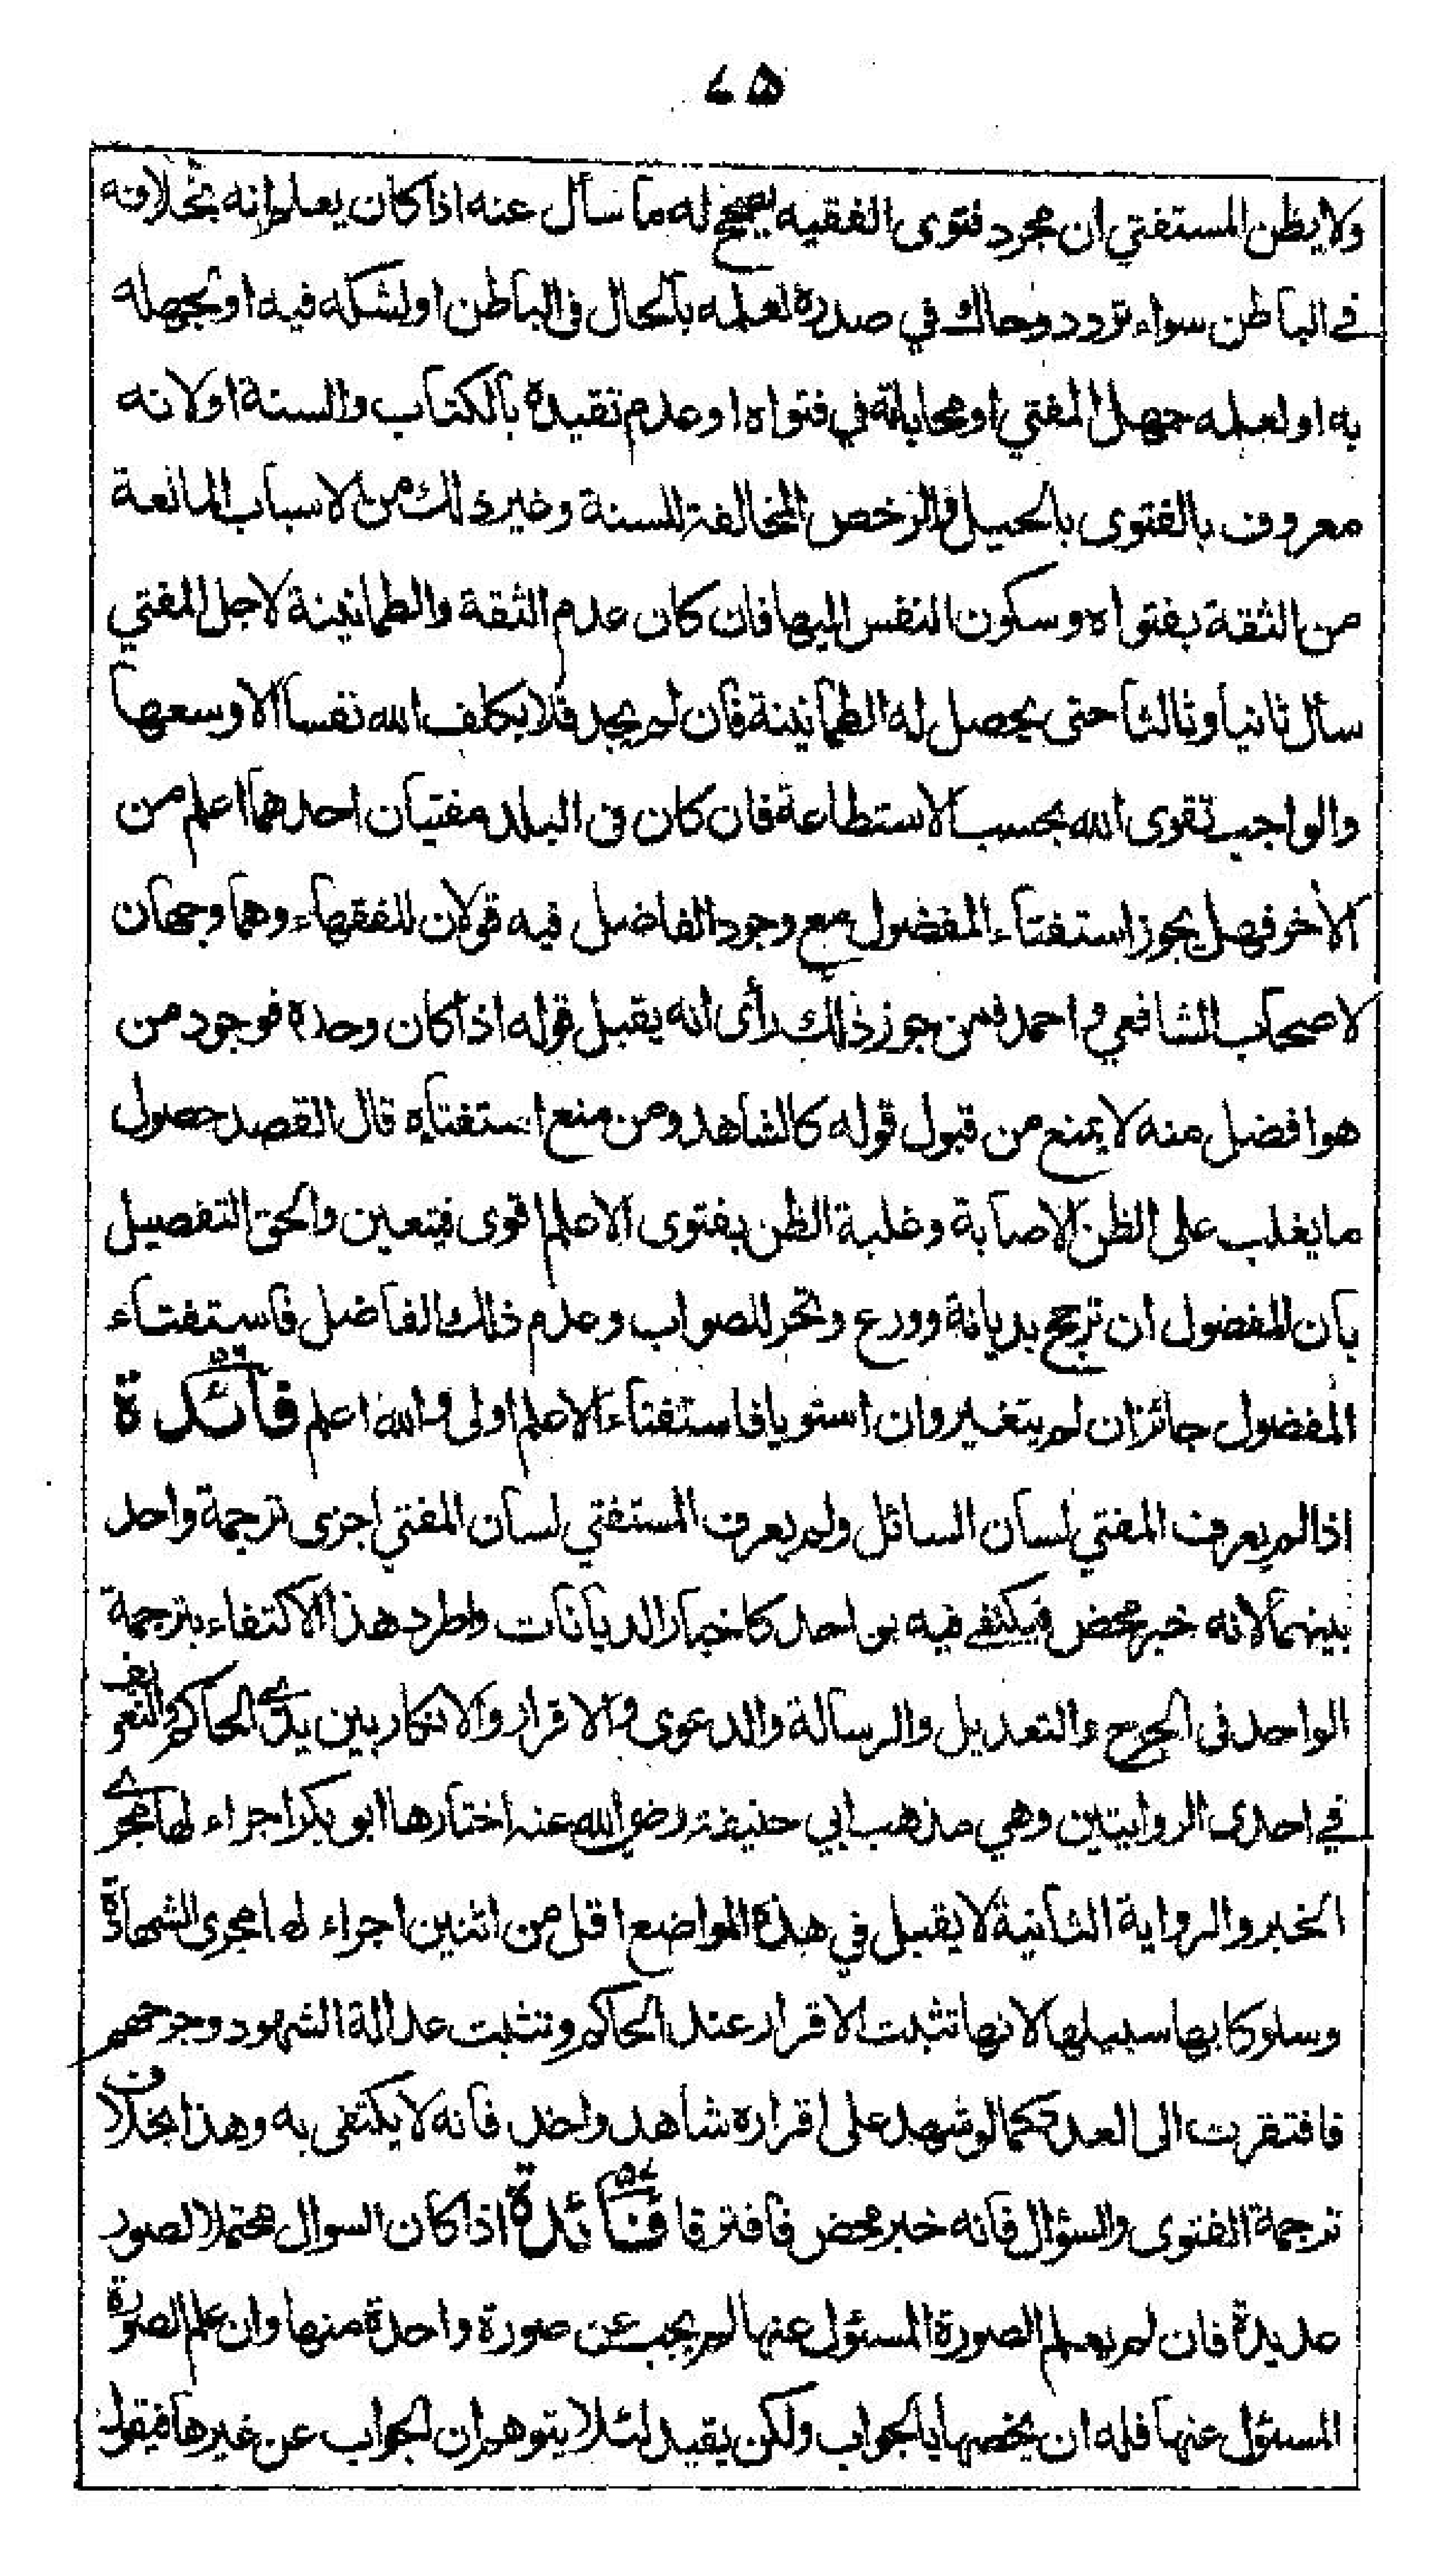 ٧٥
ولا يظن المستفتي ان مجرد فتوى الفقيه يبيح له ما سأل عنه اذا كان يعلم انه بخلافه
في الباطن سواء تردد وحاك في صدره لعلمه بالحال فى الباطن او لشكه فيه او لجهله
به او لعلمه جهل المفتي او محاباته في فتواه او عدم تقيده بالكتاب والسنة او لانه
معروف بالفتوى بالحيل والرخص المخالفة للسنة وغير ذلك من الاسباب المانعة
من الثقة بفتواه وسكون النفس اليها فان كان عدم الثقة والطمانينة لاجل المفتي
سأل ثانيا وثالثا حتى يحصل له الطمانينة فان لم يجد فلا يكلف الله نفسا الا وسعها
والواجب تقوى الله بحسب الاستطاعة فان كان فى البلد مفتيان احدهما اعلم من
الاخر فهل يجوز استفتاء المفضول مع وجود الفاضل فيه قولان للفقهاء وهما وجهان
لاصحاب الشافعي واحمد فمن جوز ذلك رأى انه يقبل قوله اذا كان وحده فوجود من
هو افضل منه لا يمنع من قبول قوله كالشاهد ومن منع استفتاءه قال القصد حصول
ما يغلب على الظن الاصابة وغلبة الظن بفتوى الاعلم اقوى فيتعين والحق التفصيل
بان المفضول ان ترجح بديانة وورع وتحر للصواب وعدم ذلك الفاضل فاستفتاء
المفضول جائز ان لم يتغير وان استويا فاستفتاء الاعلم اولى والله اعلم فائدة
اذا لم يعرف المفتي لسان السائل ولم يعرف المستفتي لسان المفتي اجزى ترجمة واحد
بينهما لانه خبر محض فيكتفي فيه بواحد كاخبار الديانات واطرد هذا الاكتفاء بترجمة
الواحد فى الجرح والتعديل والرسالة والدعوى والاقرار والانكار بين يدي الحاكم والتعريف
في احدى الروايتين وهي مذهب ابي حنيفة رضي الله عنه اختارها ابو بكر اجراء لها مجرى
الخبر والرواية الثانية لا يقبل في هذه المواضع اقل من اثنين اجراء لها مجرى الشهادة
وسلوكا بها سبيلها لانها تثبت الاقرار عند الحاكم وتثبت عدالة الشهود وجرحهم
فافتقرت الى العدد كما لو شهد على اقراره شاهد واحد فانه لا يكتفى به وهذا بخلاف
ترجمة الفتوى والسؤال فانه خبر محض فافترقا فائدة اذا كان السوال محتملا لصور
عديدة فان لم يعلم الصورة المسئول عنها لم يجب عن صورة واحدة منها وان علم الصورة
المسئول عنها فله ان يخصها بالجواب ولكن يقيد لئلا يتوهم ان الجواب عن غيرها فيقول